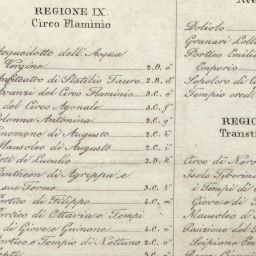 REGIONE IX.
Circo Flaminio
cquedotto dell' Acqua
Vergine 2.D.
nfiteatro di Statilio Tauro 2.B.
vanzi del Circo Flaminio 3.C. e
del Circo Agonale 3.C. f
olonna Antonina 2.C. g
nomone di Augusto 2.C. h
ausoleo di Augusto 2.C. i
rti di Lucullo 2.D. k
antheon di Agrippa, e
sue Terme 3.C. l
rtico di Filippo 4.C. m
rtico di Ottavia e Tempi
di Giove e Giunone 4.C. n
rtico e Tempio di Nettuno 2.C. o
Doliolo
Granari Loll
Portico Emili
Emporio
Sepolcro di
Tempio cred
REGIO
Transt
Circo di Nero
Isola Tiberina
i Tempi di E
Giove e di
Mausoleo d'
Posizione del
Scipione Em